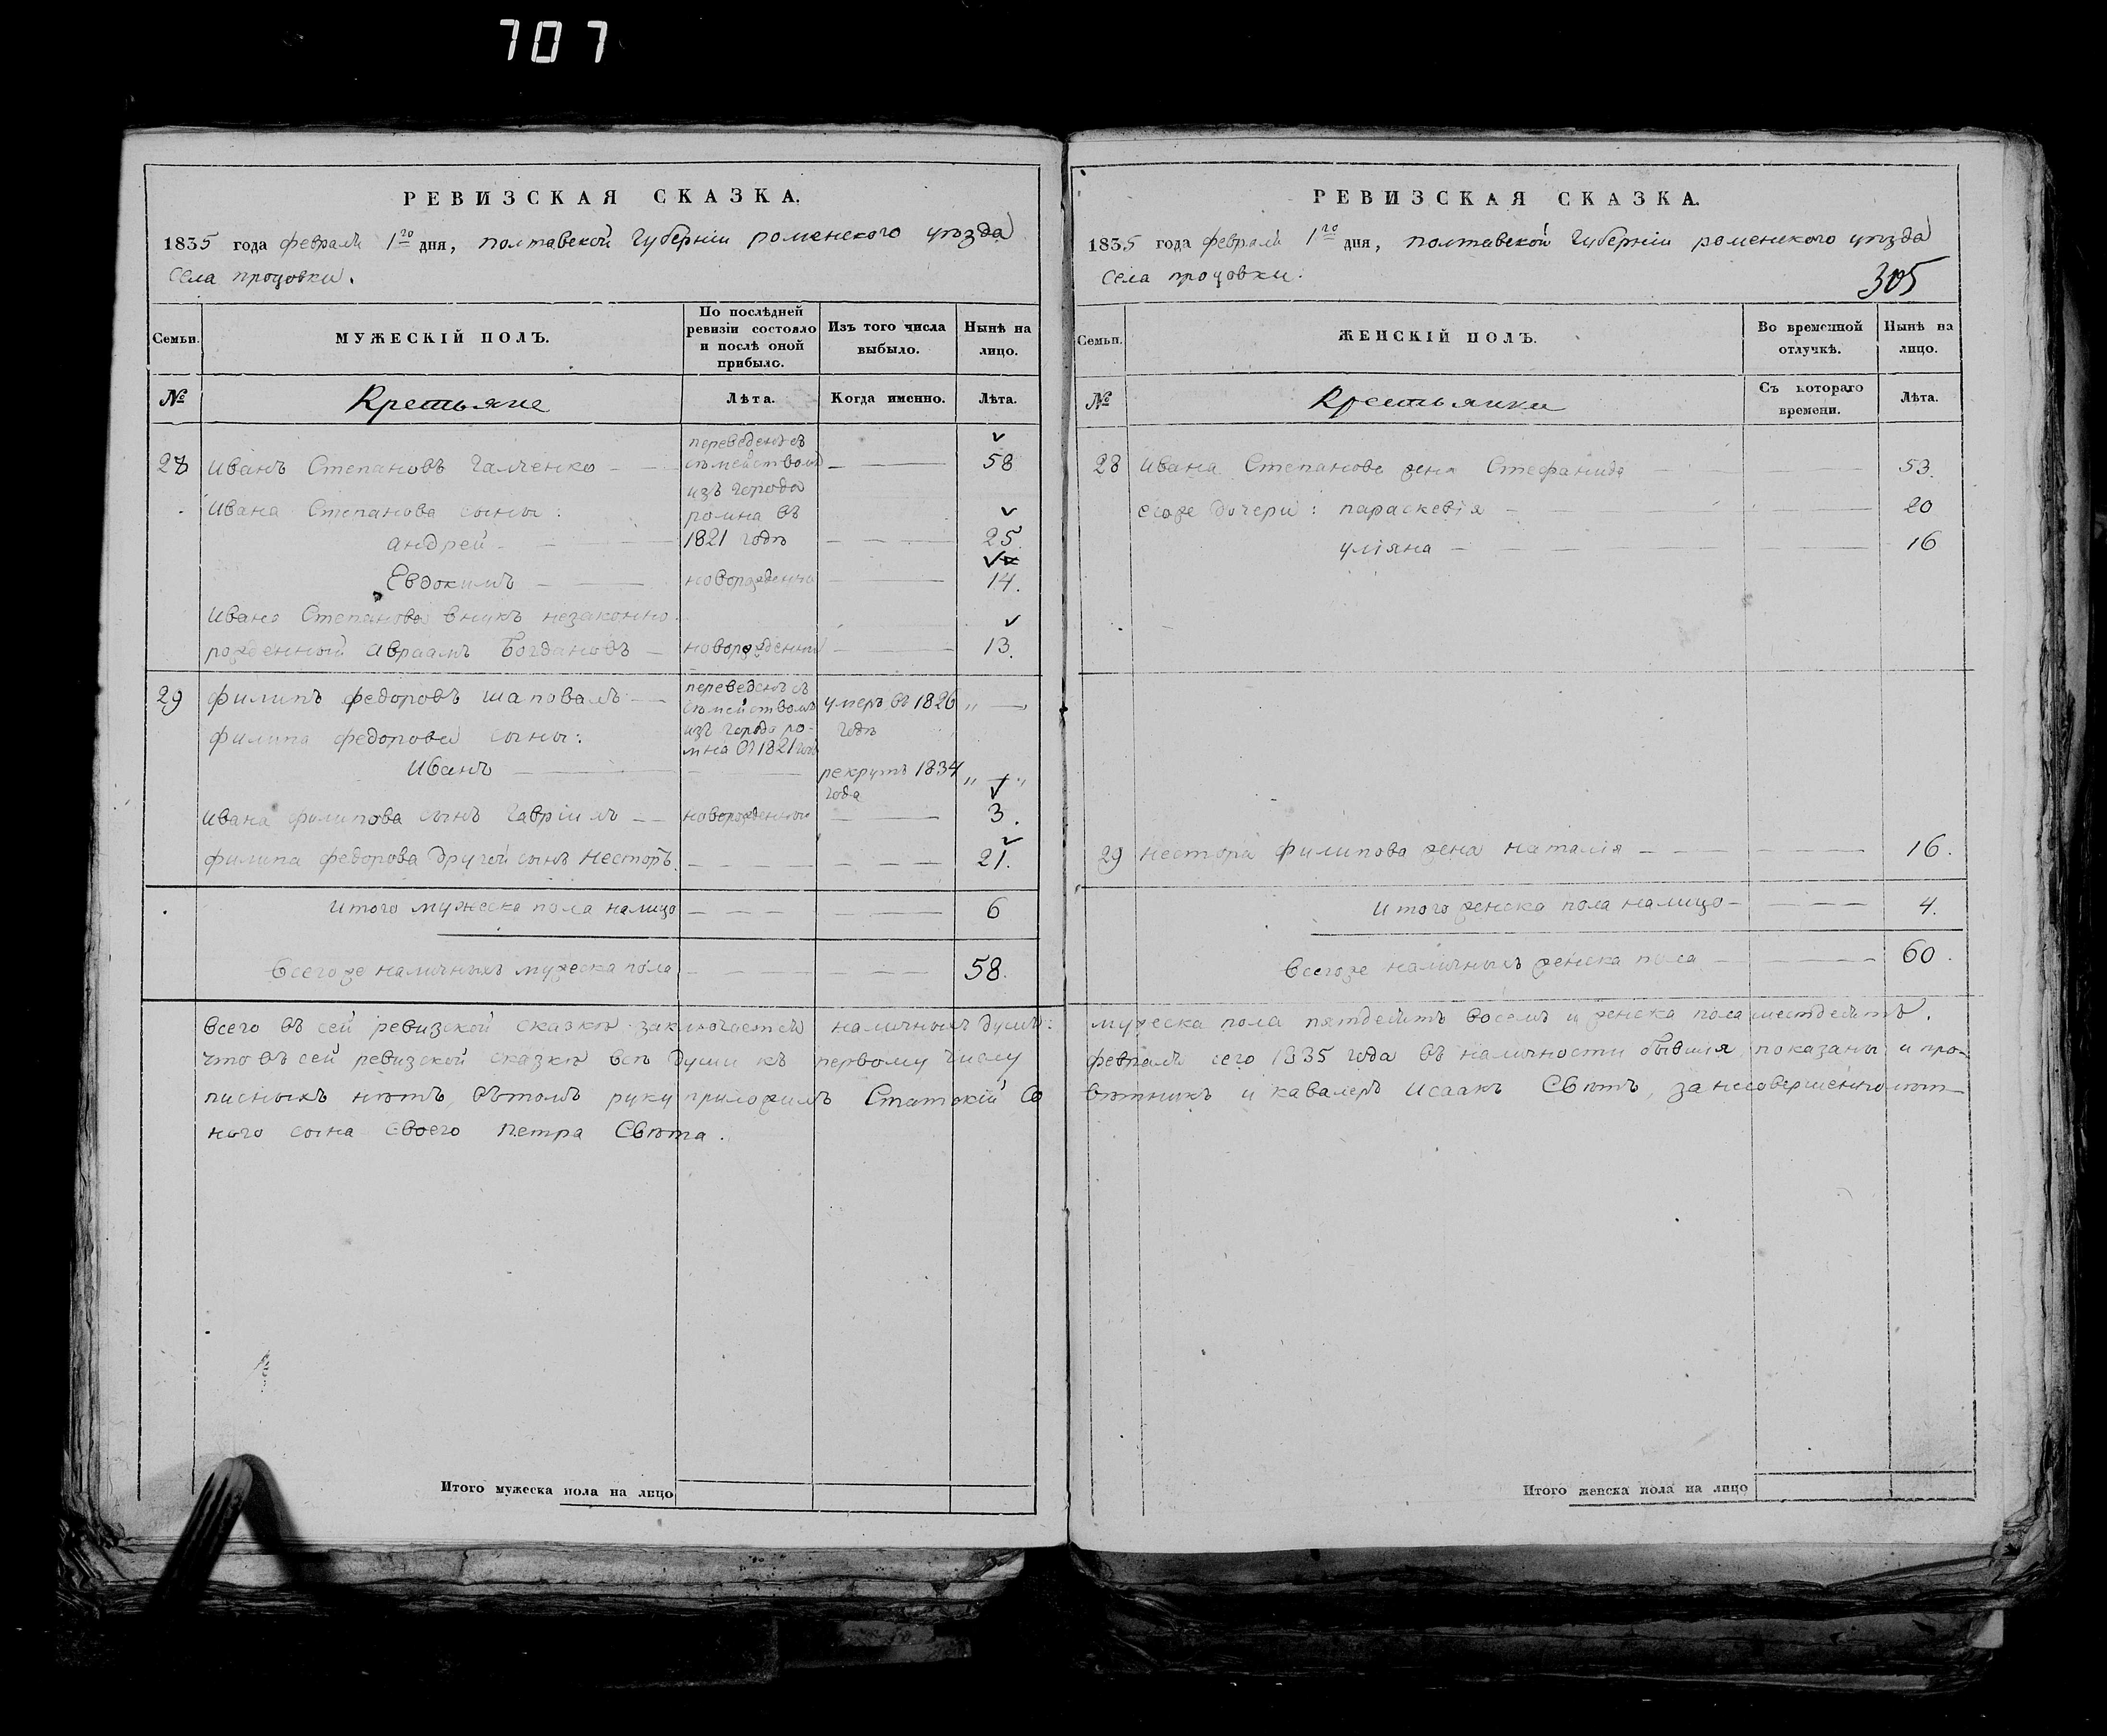 707
РЕВИЗСКАЯ СКАЗКА.
1835 года февраля 1го дня, полтавской губерніи роменского уѣзда
села процовки.
Семьи.
МУЖЕСКІЙ ПОЛЪ.
По послѣдней
ревизіи состояло
и послѣ оной
прибыло.
Изъ того числа
выбыло.
Нынѣ на
лицо.
№
Крестьяне
Лѣта.
Когда именно.
Лѣта.
28 иванъ Степановъ Галченко — 58
переведенъ съ
съмействомъ
изъ города
ромна въ
1821 годѣ
ивана Степанова сыны:
андрей — 25
Евдокимъ — новорожденны — 14.
ивана Степанова внукъ незаконно
рожденный авраамъ Богдановъ — новорожденный — 13.
29 филипъ федоровъ шаповалъ — умеръ въ 1826 „ — „
годѣ
переведенъ съ
съмействомъ
изъ города ро-
мна въ 1821 годѣ
филипа федорова сыны:
иванъ — рекрутъ 1834 „ — „
года
ивана филипова сынъ гавріилъ — новорожденный — 3.
филипа федорова другой сынъ несторъ. — 21.
итого мужеска пола налицо — 6
всегоже наличныхъ мужеска пола — 58.
всего въ сей ревизской сказкѣ заключается наличныхъ душъ:
что въ сей ревизской сказкѣ всѣ души къ первому числу
писныхъ нѣтъ, вътомъ руку приложилъ Статскій Со
ного сына своего петра Свѣта.
Итого мужеска пола на лицо
РЕВИЗСКАЯ СКАЗКА.
1835 года февраля 1го дня, полтавской губерніи роменского уѣзда
села процовки.
305
Семьи.
ЖЕНСКІЙ ПОЛЪ.
Во временной
отлучкѣ.
Нынѣ на
лицо.
№
Крестьянки
Съ котораго
времени.
Лѣта.
28 ивана Степанова жена Стефанида — 53.
егоже дочери: параскевія — 20
уліяна — 16
29 нестора филипова жена наталія — 16.
итого женска пола налицо — 4.
всегоже наличныхъ женска пола — 60.
мужеска пола пятдесятъ восемъ и женска пола шестдесятъ.
февраля сего 1835 года въ наличности бывшія, показаны и про-
вѣтникъ и кавалеръ исаакъ Свѣтъ, за несовершеннолѣт-
Итого женска пола на лицо